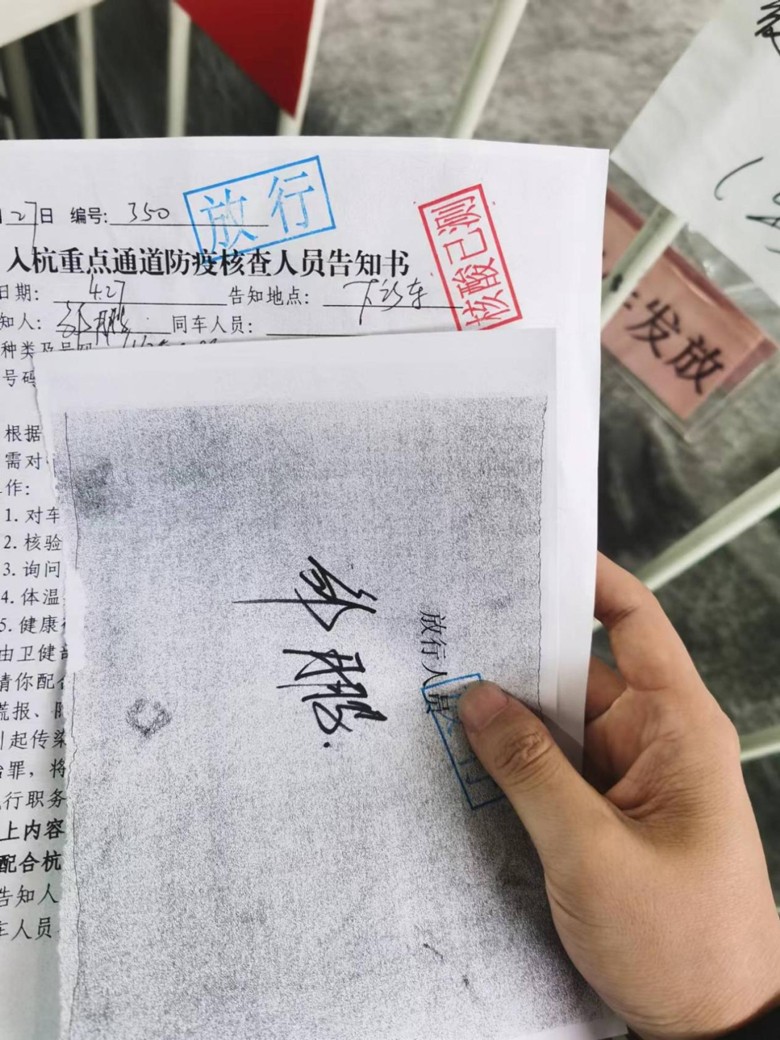 27日 编号: 350
放行
核酸已测
入杭重点通道防疫核查人员告知书
日期: 4.27 告知地点: 下沙东
知人: 同车人员:
种类及号码
号码
根据
需对
作:
1. 对车
2. 核验
3. 询问
4. 体温
5. 健康
由卫健部
请你配合
谎报、
引起传染
治罪，将
行职务
上内容
配合杭
告知人
车人员
放行人员
发放